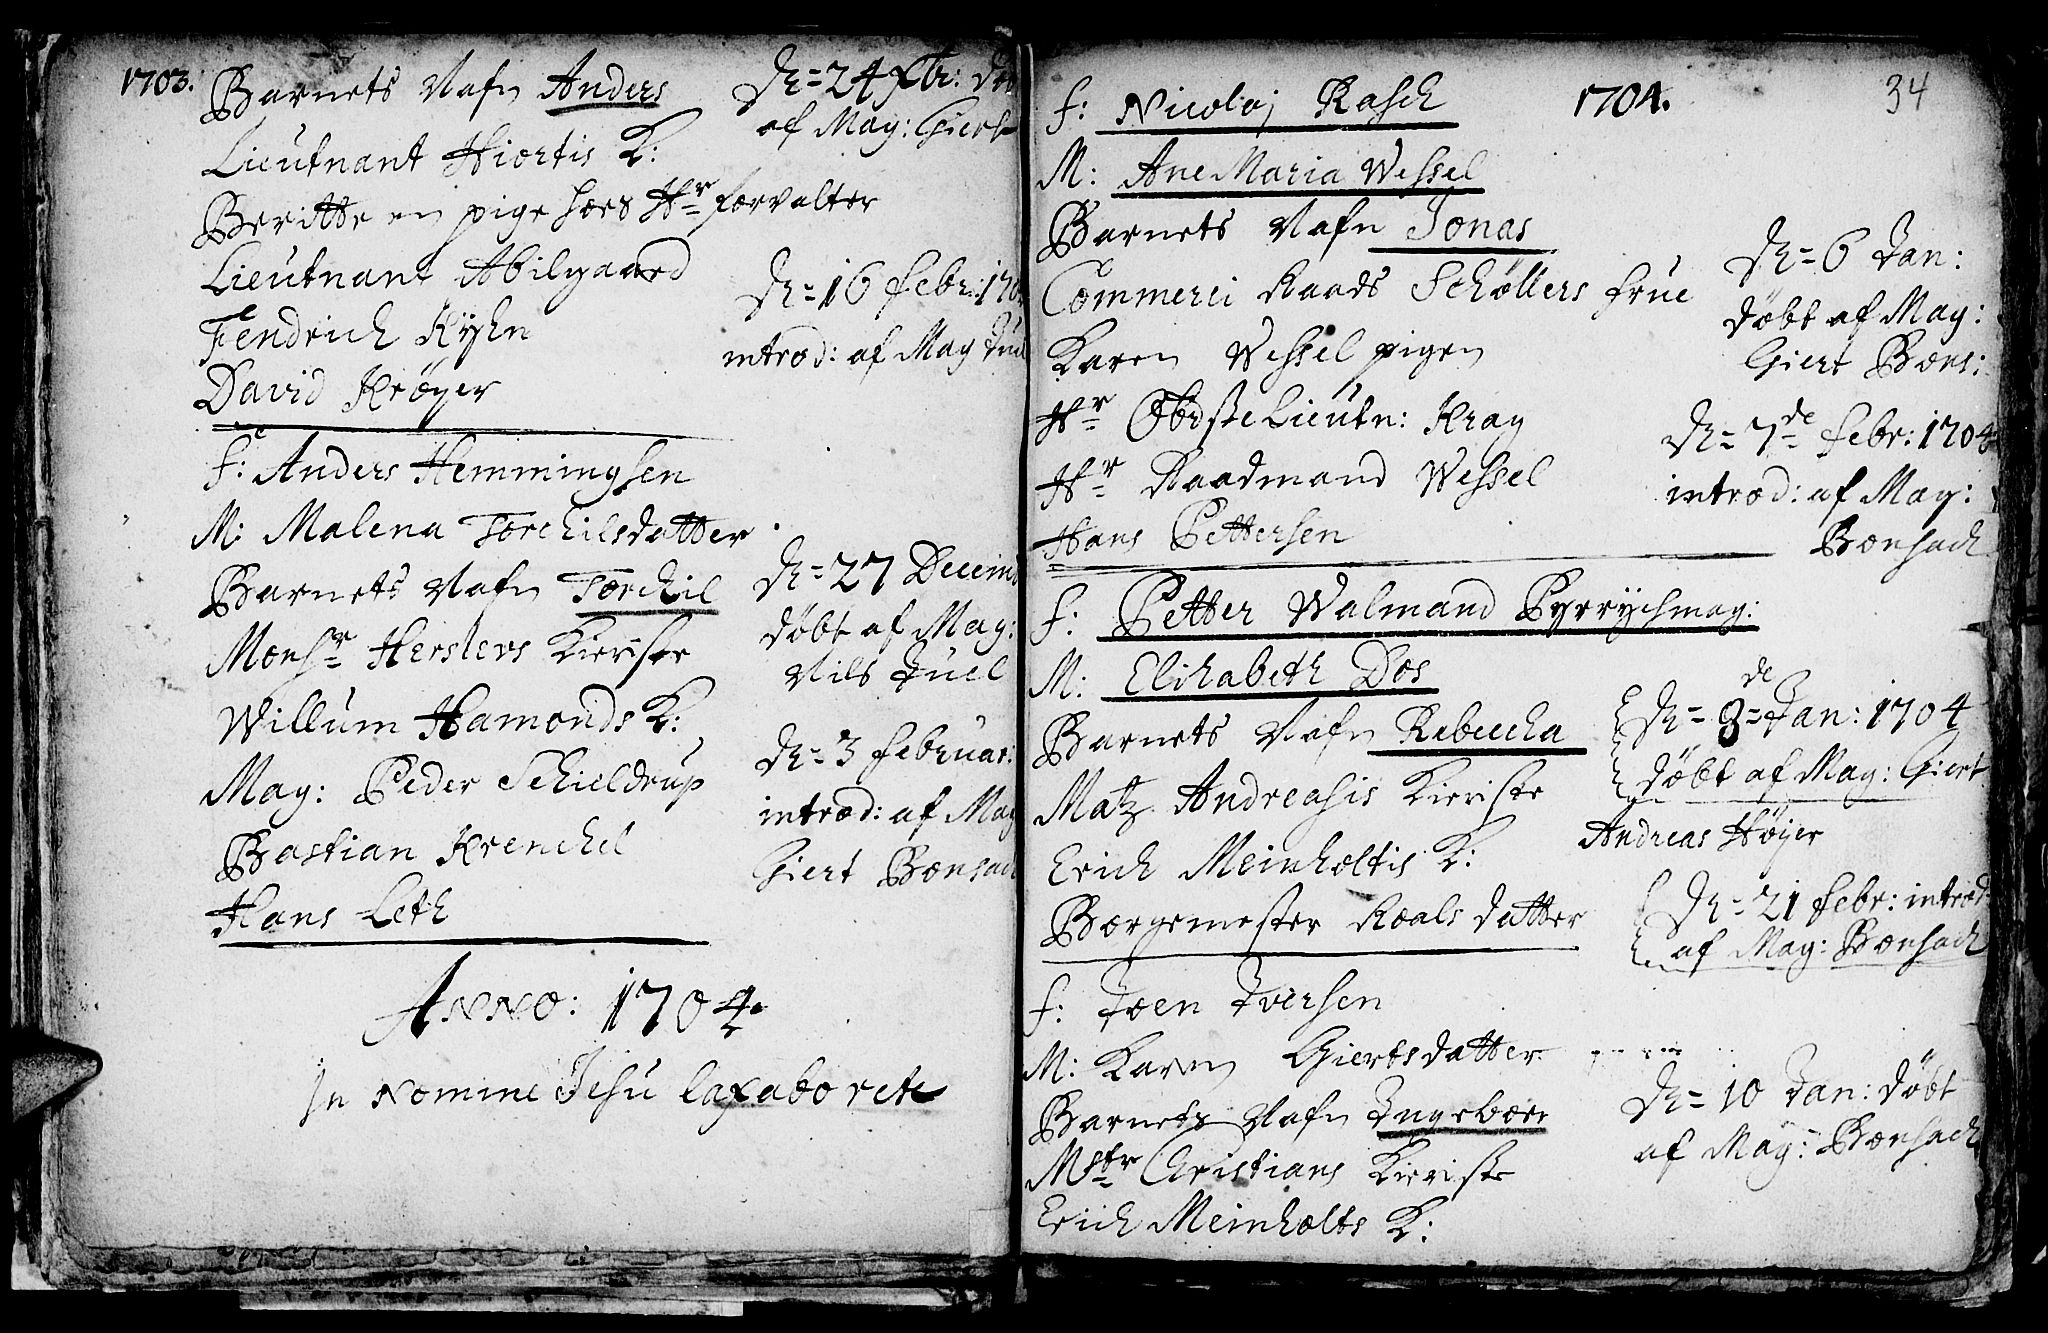 1703.
Barnets Nafn Anders
Lieutnant Hiortis K:
Beritte en pige hoes Hr forvalter
Lieutnant Abilgaard
Fendrich Ryhn
David Krøyer
D= 24 Xbr:
af Mag: Giert
D= 16 Febr: 170
introd: af Mag Juel
F: Anders Hemmingsen
M: Malena Torchilsdatter
Barnets Nafn Torchil
Monsr Herslevs Kieriste
Willum Hamonds K:
Mag: Peder Schieldrup
Bastian Krenchel
Hans Leth
D= 27 Decemb
døbt af Mag:
Nils Juel
D= 3 Februar:
introd: af Mag
Giert Bonsach
Anno: 1704.
In Nomine Jesu laxabo rete
34
1704.
F: Nicolaj Rasch
M: Ane Maria Wessel
Barnets Nafn Jonas
Commerci Raads Schøllers frue
Karen Wessel pigen
Hr Obrste Lieutn: Krag
Hr Raadmand Wessel
Hans Pettersen
D= 6 Jan:
døbt af Mag:
Giert Bons:
D= 7de Febr: 1704
introd: af Mag:
Bonsach
F: Petter Walmand
M: Elisabeth Dos
Barnets Nafn Rebeccha
Matz Andreasis Kieriste
Erich Meinholtis K:
Borgemester Roals datter
D= 8de Jan: 1704
døbt af Mag: Giert
Andreas Høyer
D= 21 Febr: introd:
af Mag: Bonsach
F: Joen Iversen
M: Karen Giertsdatter
Barnets Nafn Ingeboer
Mstr Christians Kieriste
Erich Meinholts K:
D= 10 Jan: døbt
af Mag: Bonsach